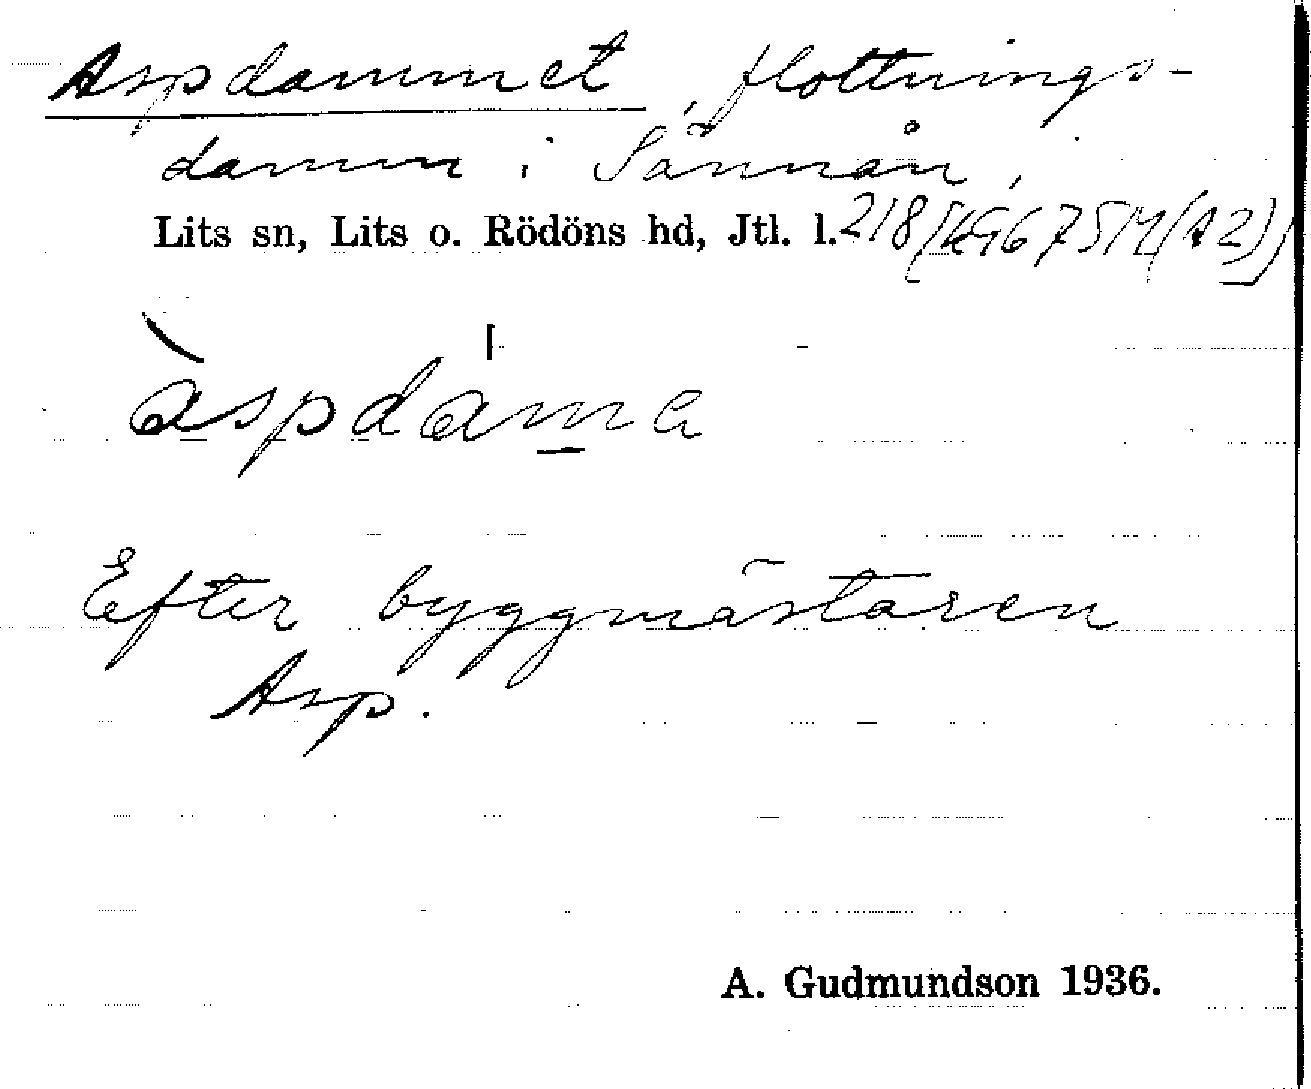 Aspdammet, flottnings-
damm i Sännån,
Lits sn, Lits o. Rödöns hd, Jtl. l. 218
àspdáma
Efter byggmästaren
Asp.
A. Gudmundson 1936.